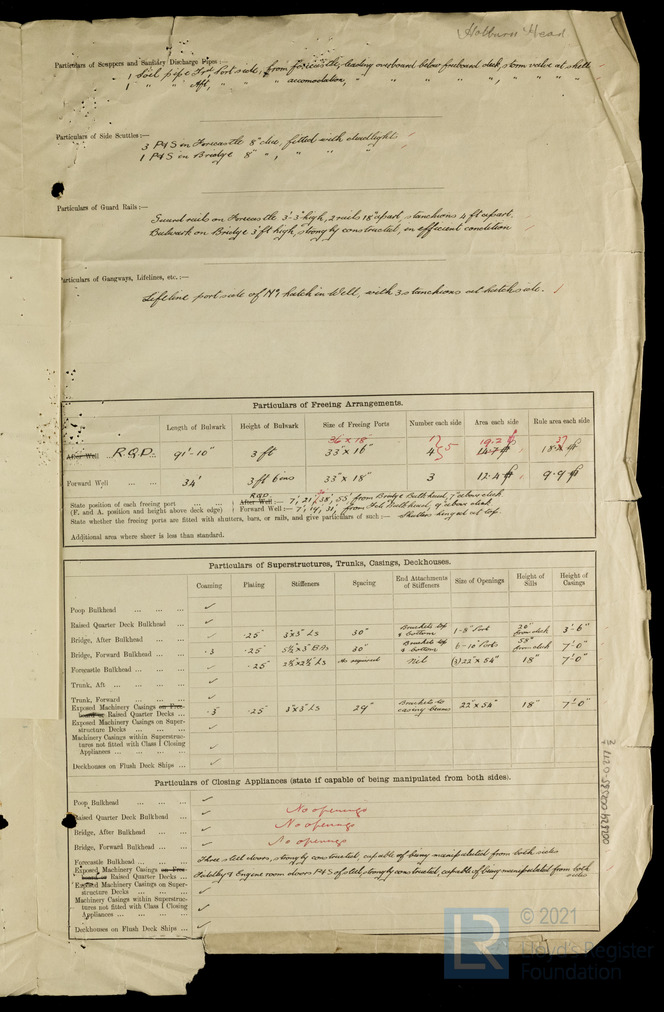 Holburn Head
Particulars of Scuppers and Sanitary Discharge Pipes :—
1 Soil pipe Fwd Port side, from Forecastle, leading overboard below freeboard deck, storm valve at shell
1 " " Aft, " " " accomodation, " " " " " " "
Particulars of Side Scuttles:—
3 P&S in Forecastle 8" dia, fitted with deadlights
1 P&S in Bridge 8" " , " " "
Particulars of Guard Rails :—
Guard rails on Forecastle 3'-3" high, 2 rails 18" apart, stanchions 4 ft apart.
Bulwark on Bridge 3 ft high, strongly constructed, in efficient condition
Particulars of Gangways, Lifelines, etc. :—
Lifeline port side of No 1 hatch in Well, with 3 stanchions at hatch side.
Particulars of Freeing Arrangements.
Length of Bulwark Height of Bulwark Size of Freeing Ports Number each side Area each side Rule area each side
36 x 18" 1 19.2
After Well ... R.Q.D. ... 91'-10" 3 ft 33 x 16" 4 5 14.7
Forward Well ... ... 34' 3 ft 6 ins 33" x 18" 3 12.4 9.9
R.Q.D.
State position of each freeing port ... ... After Well :— 7', 21', 38', 55' from Bridge Bulkhead, 7" above deck
(F. and A. position and height above deck edge) Forward Well :— 7', 19', 31', from Fcle Bulkhead, 9" above deck
State whether the freeing ports are fitted with shutters, bars, or rails, and give particulars of such :— Shutters hinged at top.
Additional area where sheer is less than standard.
Particulars of Superstructures, Trunks, Casings, Deckhouses.
Coaming Plating Stiffeners Spacing End Attachments of Stiffeners Size of Openings Height of Sills Height of Casings
Poop Bulkhead ... ... ...
Raised Quarter Deck Bulkhead ...
Bridge, After Bulkhead ... ... .25" 3"x3" Ls 30" Brackets top & bottom 1-8" Port 30" from deck 3'-6"
Bridge, Forward Bulkhead ... ... .3 .25" 5½"x3" B.As 30" Brackets top & bottom 6-10" Ports 58" from deck 7'-0"
Forecastle Bulkhead ... ... ... .25" 2½"x2½" Ls As required Nil (3) 22"x54" 18" 7'-0"
Trunk, Aft ... ... ... ...
Trunk, Forward ... ... ...
Exposed Machinery Casings on Free-
board or Raised Quarter Decks ... .3" .25" 3"x3" Ls 29" Brackets to casing beams 22"x54" 18" 7'-0"
Exposed Machinery Casings on Super-
structure Decks ... ... ...
Machinery Casings within Superstruc-
tures not fitted with Class I Closing
Appliances ... ... ... ...
Deckhouses on Flush Deck Ships ...
Particulars of Closing Appliances (state if capable of being manipulated from both sides).
Poop Bulkhead ... ... ...
Raised Quarter Deck Bulkhead ... No openings
Bridge, After Bulkhead ... ... No openings
Bridge, Forward Bulkhead ... ... No openings
Forecastle Bulkhead ... ... ... Three steel doors, strongly constructed, capable of being manipulated from both sides
Exposed Machinery Casings on Free-
board or Raised Quarter Decks ... Fiddley & Engine room doors P&S of steel, strongly constructed, capable of being manipulated from both sides
Exposed Machinery Casings on Super-
structure Decks ... ... ...
Machinery Casings within Superstruc-
tures not fitted with Class I Closing
Appliances ... ... ... ...
Deckhouses on Flush Deck Ships ...
002824-002835-0217
LR © 2021
Lloyd's Register
Foundation